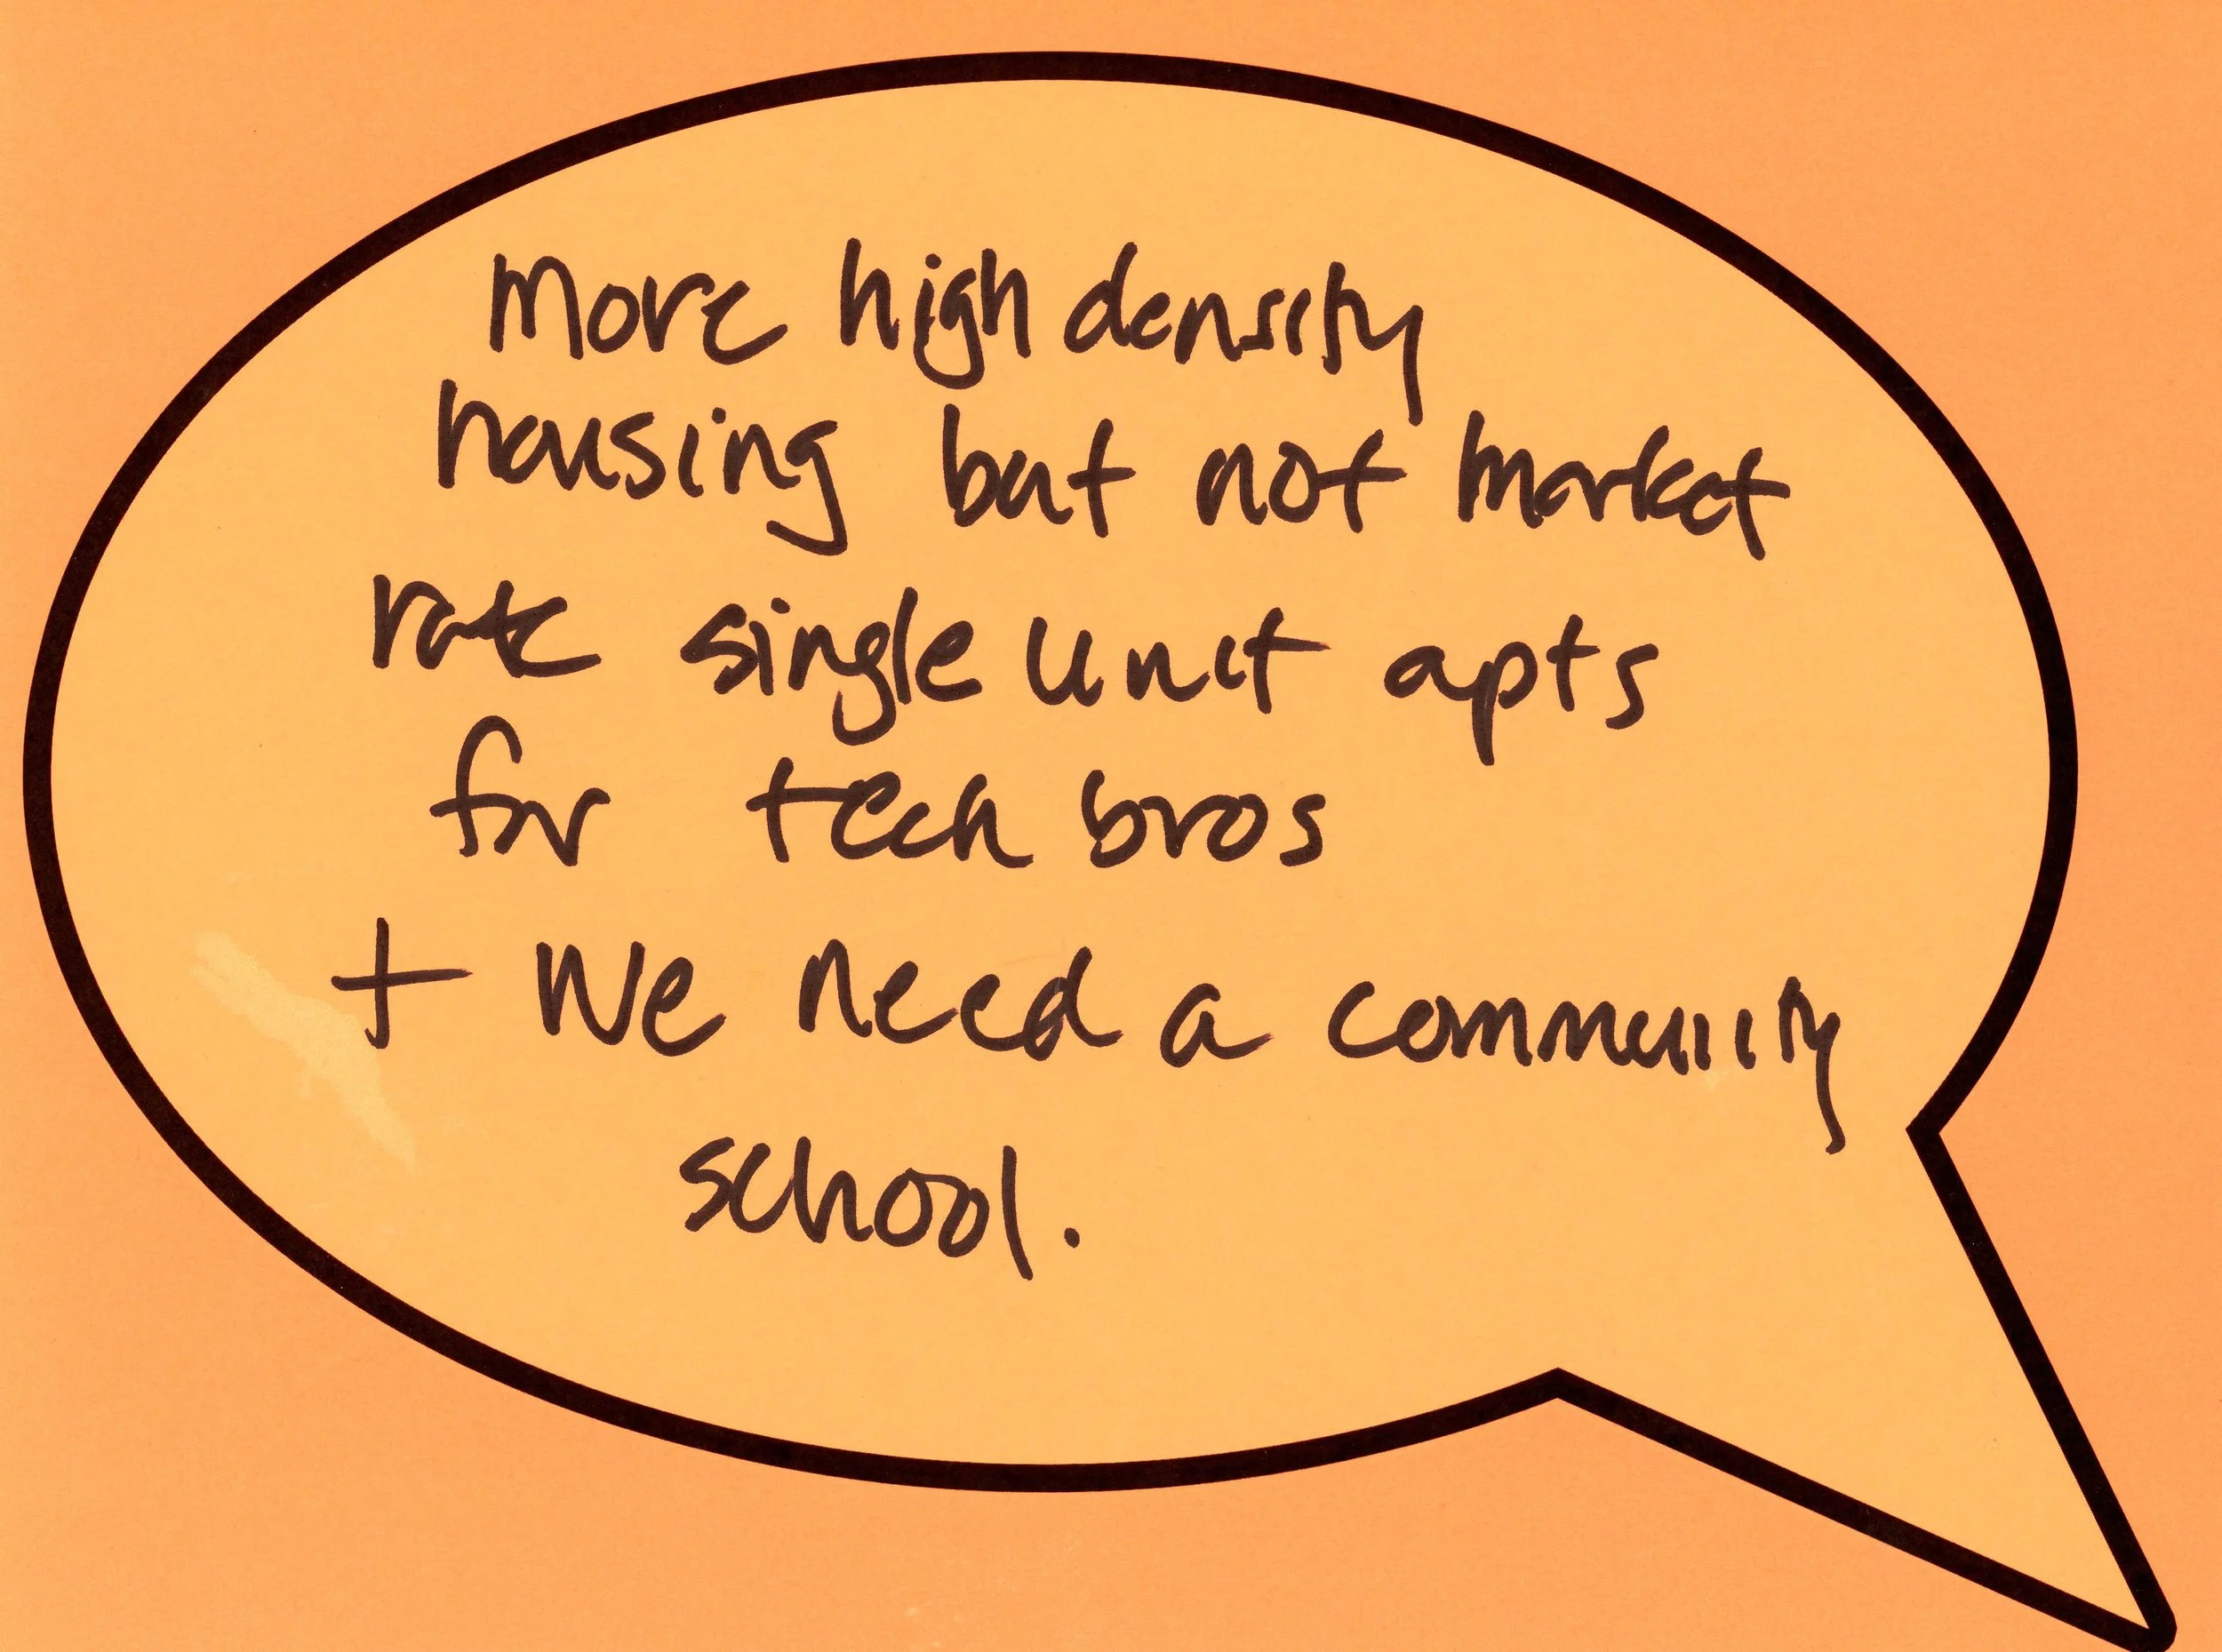 More high density
housing but not market
rate single unit apts
for tech bros
+ We need a community
school.